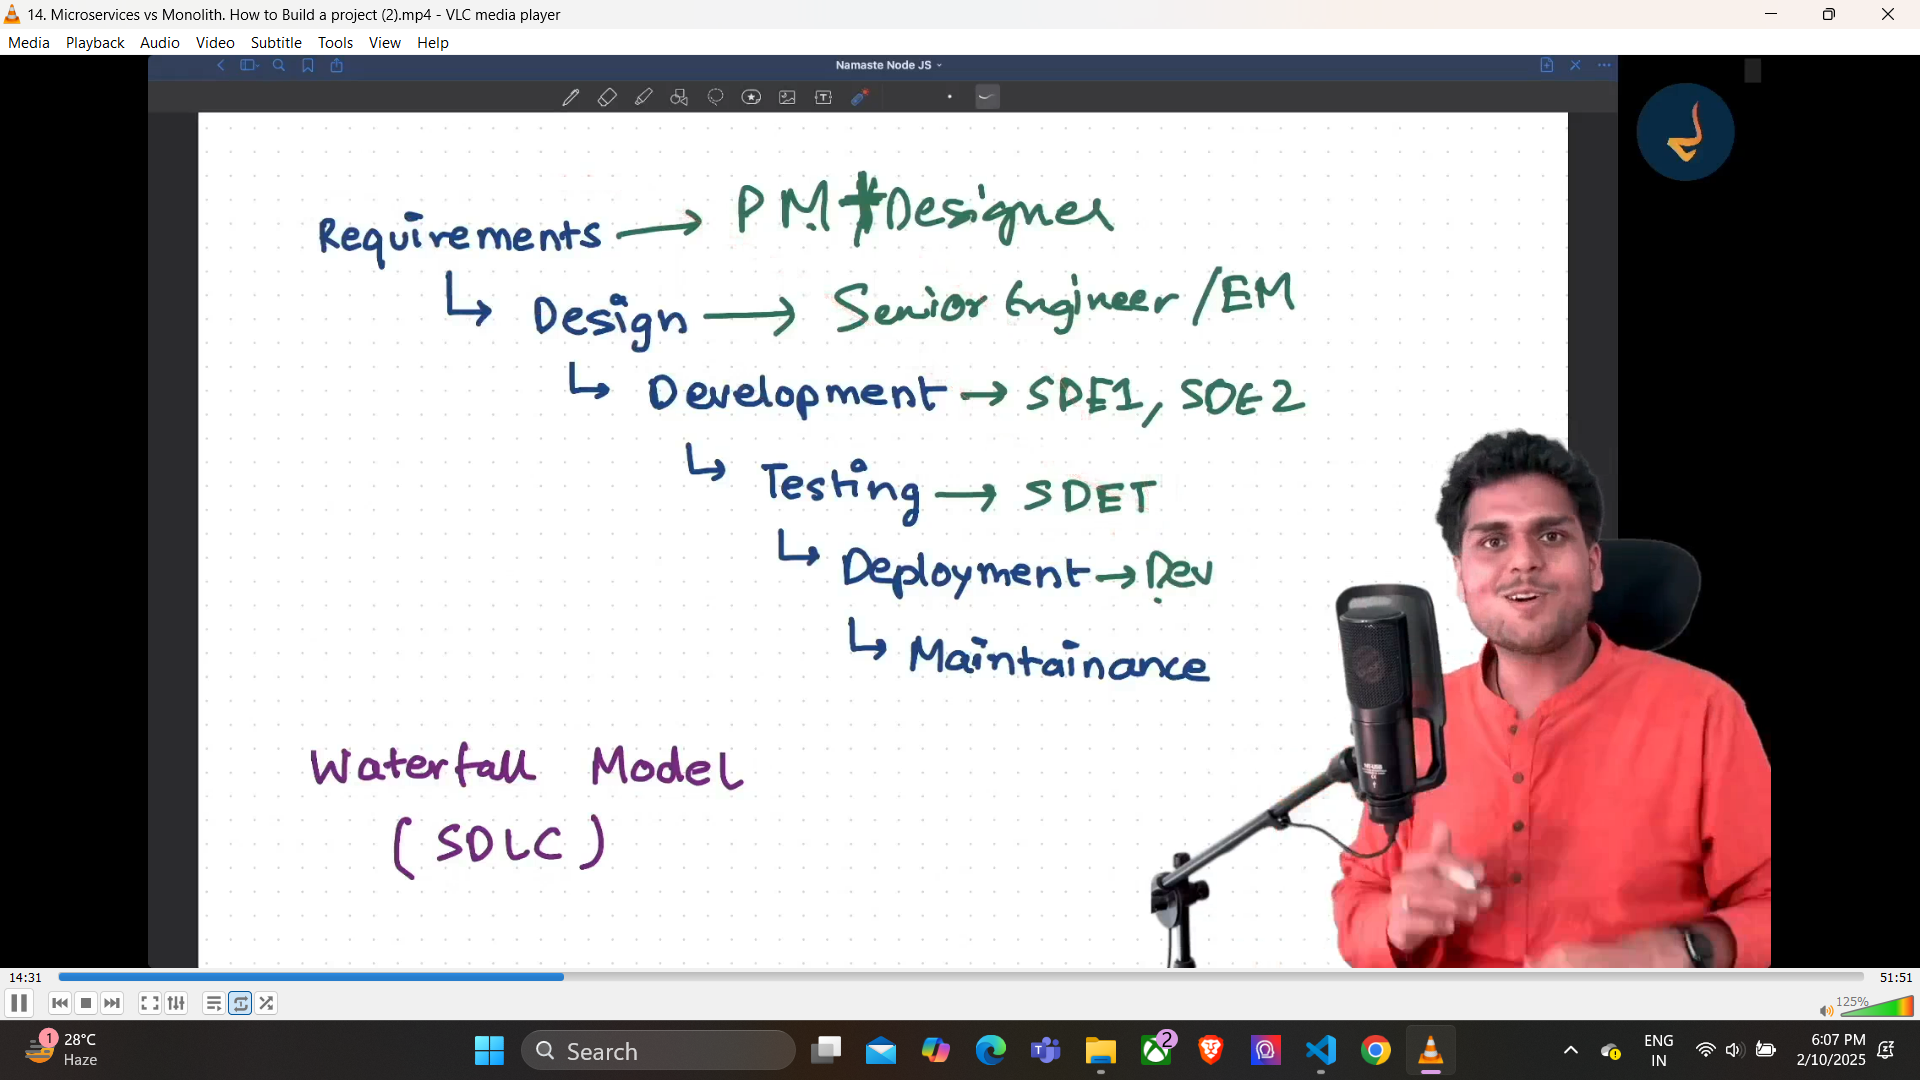 14. Microservices vs Monolith. How to Build a project (2).mp4 - VLC media player
Media Playback Audio Video Subtitle Tools View Help
Namaste Node JS
Requirements → PM + Designer
↳ Design → Senior Engineer / EM
↳ Development → SDE1, SDE2
↳ Testing → SDET
↳ Deployment → Dev
↳ Maintainance
Waterfall Model
(SDLC)
14:31
51:51
125%
1
28°C
Haze
Search
2
ENG
IN
6:07 PM
2/10/2025